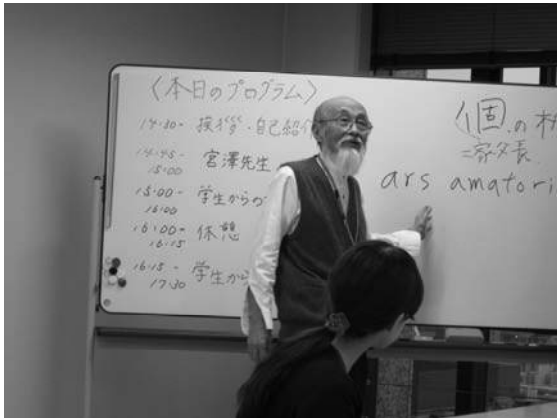 〈本日のプログラム〉
14:30- 挨拶・自己紹介
14:45- 15:00 宮澤先生
15:00- 16:00 学生からの
16:00- 16:15 休憩
16:15- 17:30 学生から
個の
=家父長
ars amatori